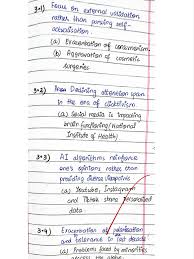 3.1) Focus on external validation
rather than pursing self-
actualisation.
(a) Exacerbation of consumerism
(b) Aggravation of cosmetic
surgeries
3.2) Declining attention span
in the era of clicktivism
(a) Social media is impacting
brain functioning (National
Institute of Health)
3.3) AI algorithms reinforce
one's opinions rather than
providing diverse viewpoints
(a) Youtube, Instagram
and Tiktok share personalised
data
3.4) Exacerbation of polarisation
and tolerance in last decade
(a) Problems faced by minorities